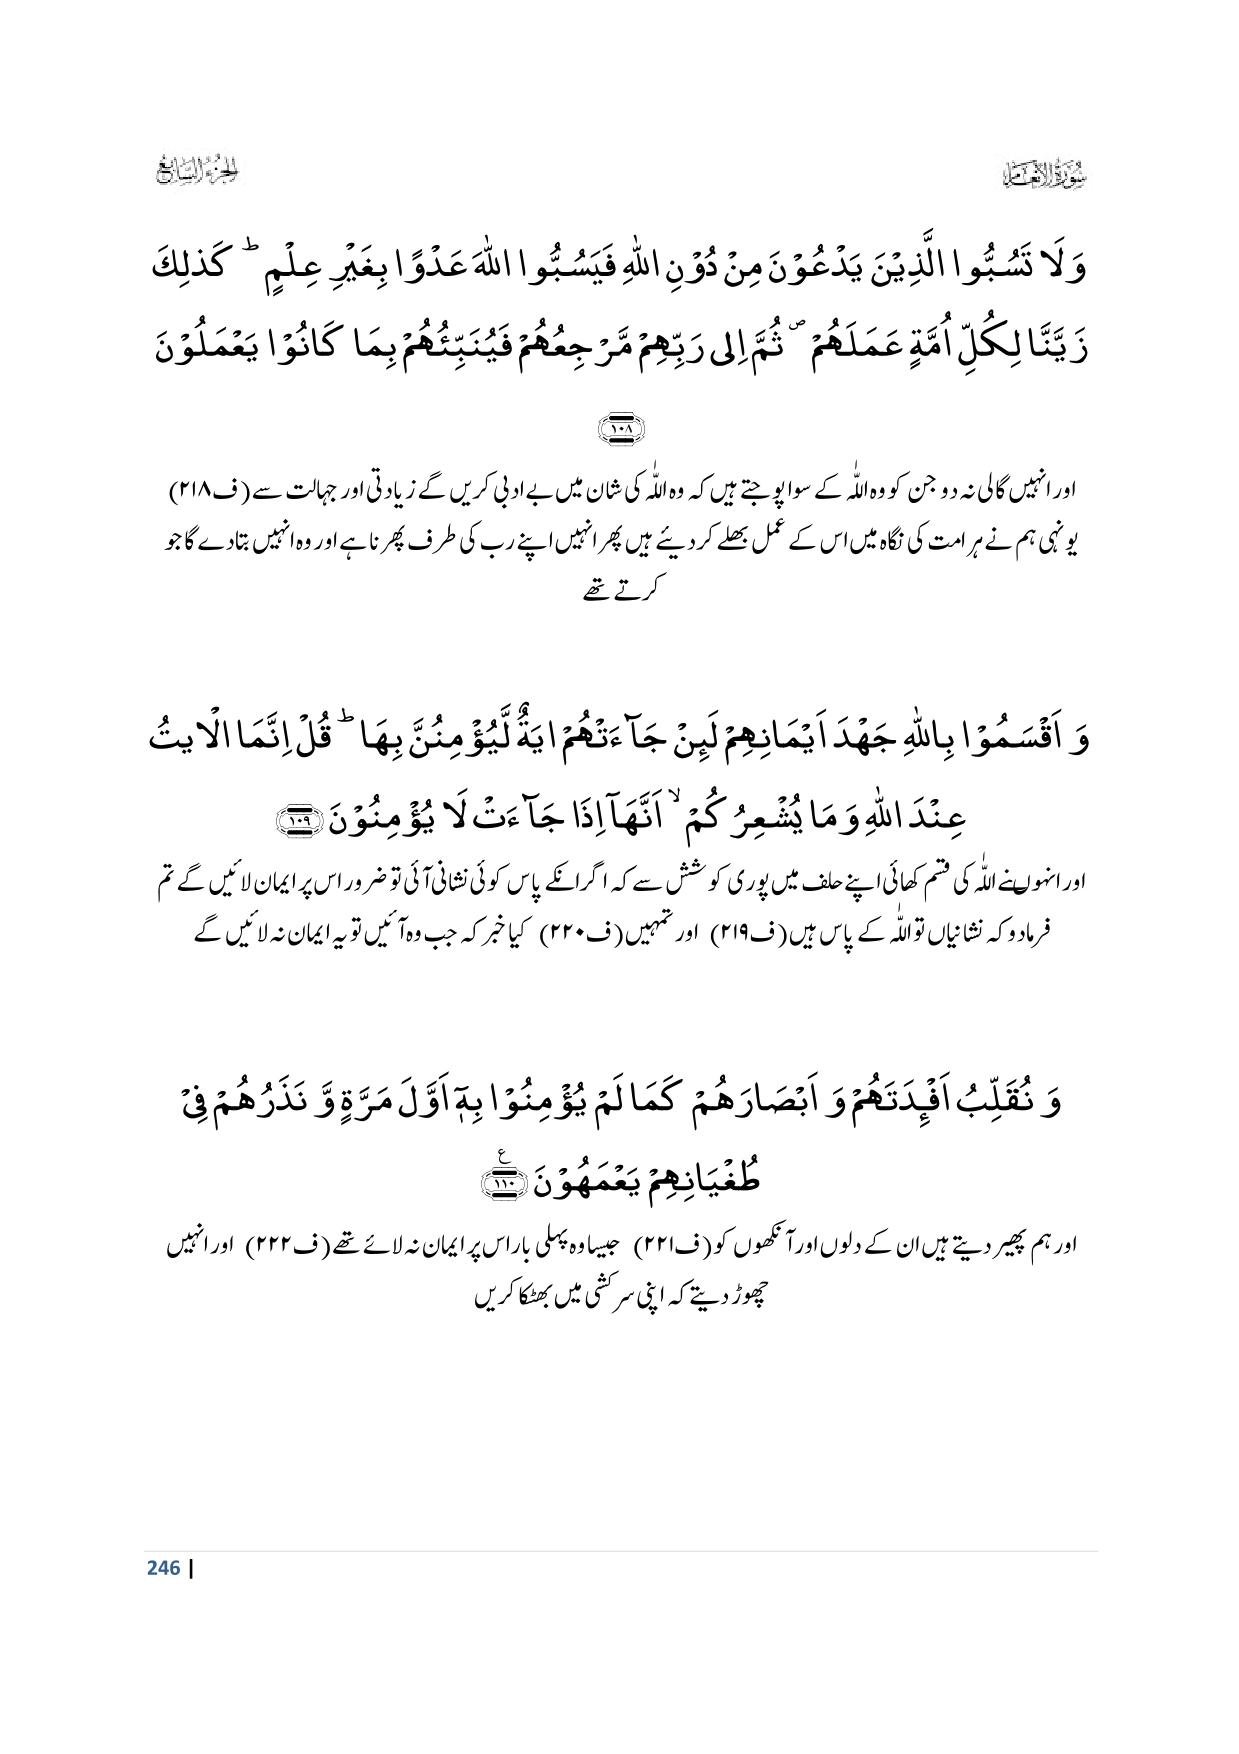 سُوْرَةُ الْاَنْعَام
الجُزْءُ السَّابِعُ
وَلَا تَسُبُّوا الَّذِيْنَ يَدْعُوْنَ مِنْ دُوْنِ اللّٰهِ فَيَسُبُّوا اللّٰهَ عَدْوًۢا بِغَيْرِ عِلْمٍ ؕ كَذٰلِكَ
زَيَّنَّا لِكُلِّ اُمَّةٍ عَمَلَهُمْ ۪ ثُمَّ اِلٰى رَبِّهِمْ مَّرْجِعُهُمْ فَيُنَبِّئُهُمْ بِمَا كَانُوْا يَعْمَلُوْنَ
﴿۱۰۸﴾
اور انہیں گالی نہ دو جن کو وہ اللّٰہ کے سوا پوجتے ہیں کہ وہ اللّٰہ کی شان میں بے ادبی کریں گے زیادتی اور جہالت سے (ف۲۱۸)
یونہی ہم نے ہر امت کی نگاہ میں اس کے عمل بھلے کر دیئے ہیں پھر انہیں اپنے رب کی طرف پھرنا ہے اور وہ انہیں بتا دے گا جو
کرتے تھے
وَ اَقْسَمُوْا بِاللّٰهِ جَهْدَ اَيْمَانِهِمْ لَئِنْ جَآءَتْهُمْ اٰيَةٌ لَّيُؤْمِنُنَّ بِهَا ؕ قُلْ اِنَّمَا الْاٰيٰتُ
عِنْدَ اللّٰهِ وَمَا يُشْعِرُكُمْ ۙ اَنَّهَاۤ اِذَا جَآءَتْ لَا يُؤْمِنُوْنَ ﴿۱۰۹﴾
اور انہوں نے اللّٰہ کی قسم کھائی اپنے حلف میں پوری کوشش سے کہ اگر انکے پاس کوئی نشانی آئی تو ضرور اس پر ایمان لائیں گے تم
فرما دو کہ نشانیاں تو اللّٰہ کے پاس ہیں (ف۲۱۹) اور تمہیں (ف۲۲۰) کیا خبر کہ جب وہ آئیں تو یہ ایمان نہ لائیں گے
وَ نُقَلِّبُ اَفْـِٕدَتَهُمْ وَ اَبْصَارَهُمْ كَمَا لَمْ يُؤْمِنُوْا بِهٖۤ اَوَّلَ مَرَّةٍ وَّ نَذَرُهُمْ فِيْ
طُغْيَانِهِمْ يَعْمَهُوْنَ ﴿۱۱۰﴾ ع
اور ہم پھیر دیتے ہیں ان کے دلوں اور آنکھوں کو (ف۲۲۱) جیسا وہ پہلی بار اس پر ایمان نہ لائے تھے (ف۲۲۲) اور انہیں
چھوڑ دیتے کہ اپنی سرکشی میں بھٹکا کریں
246 |